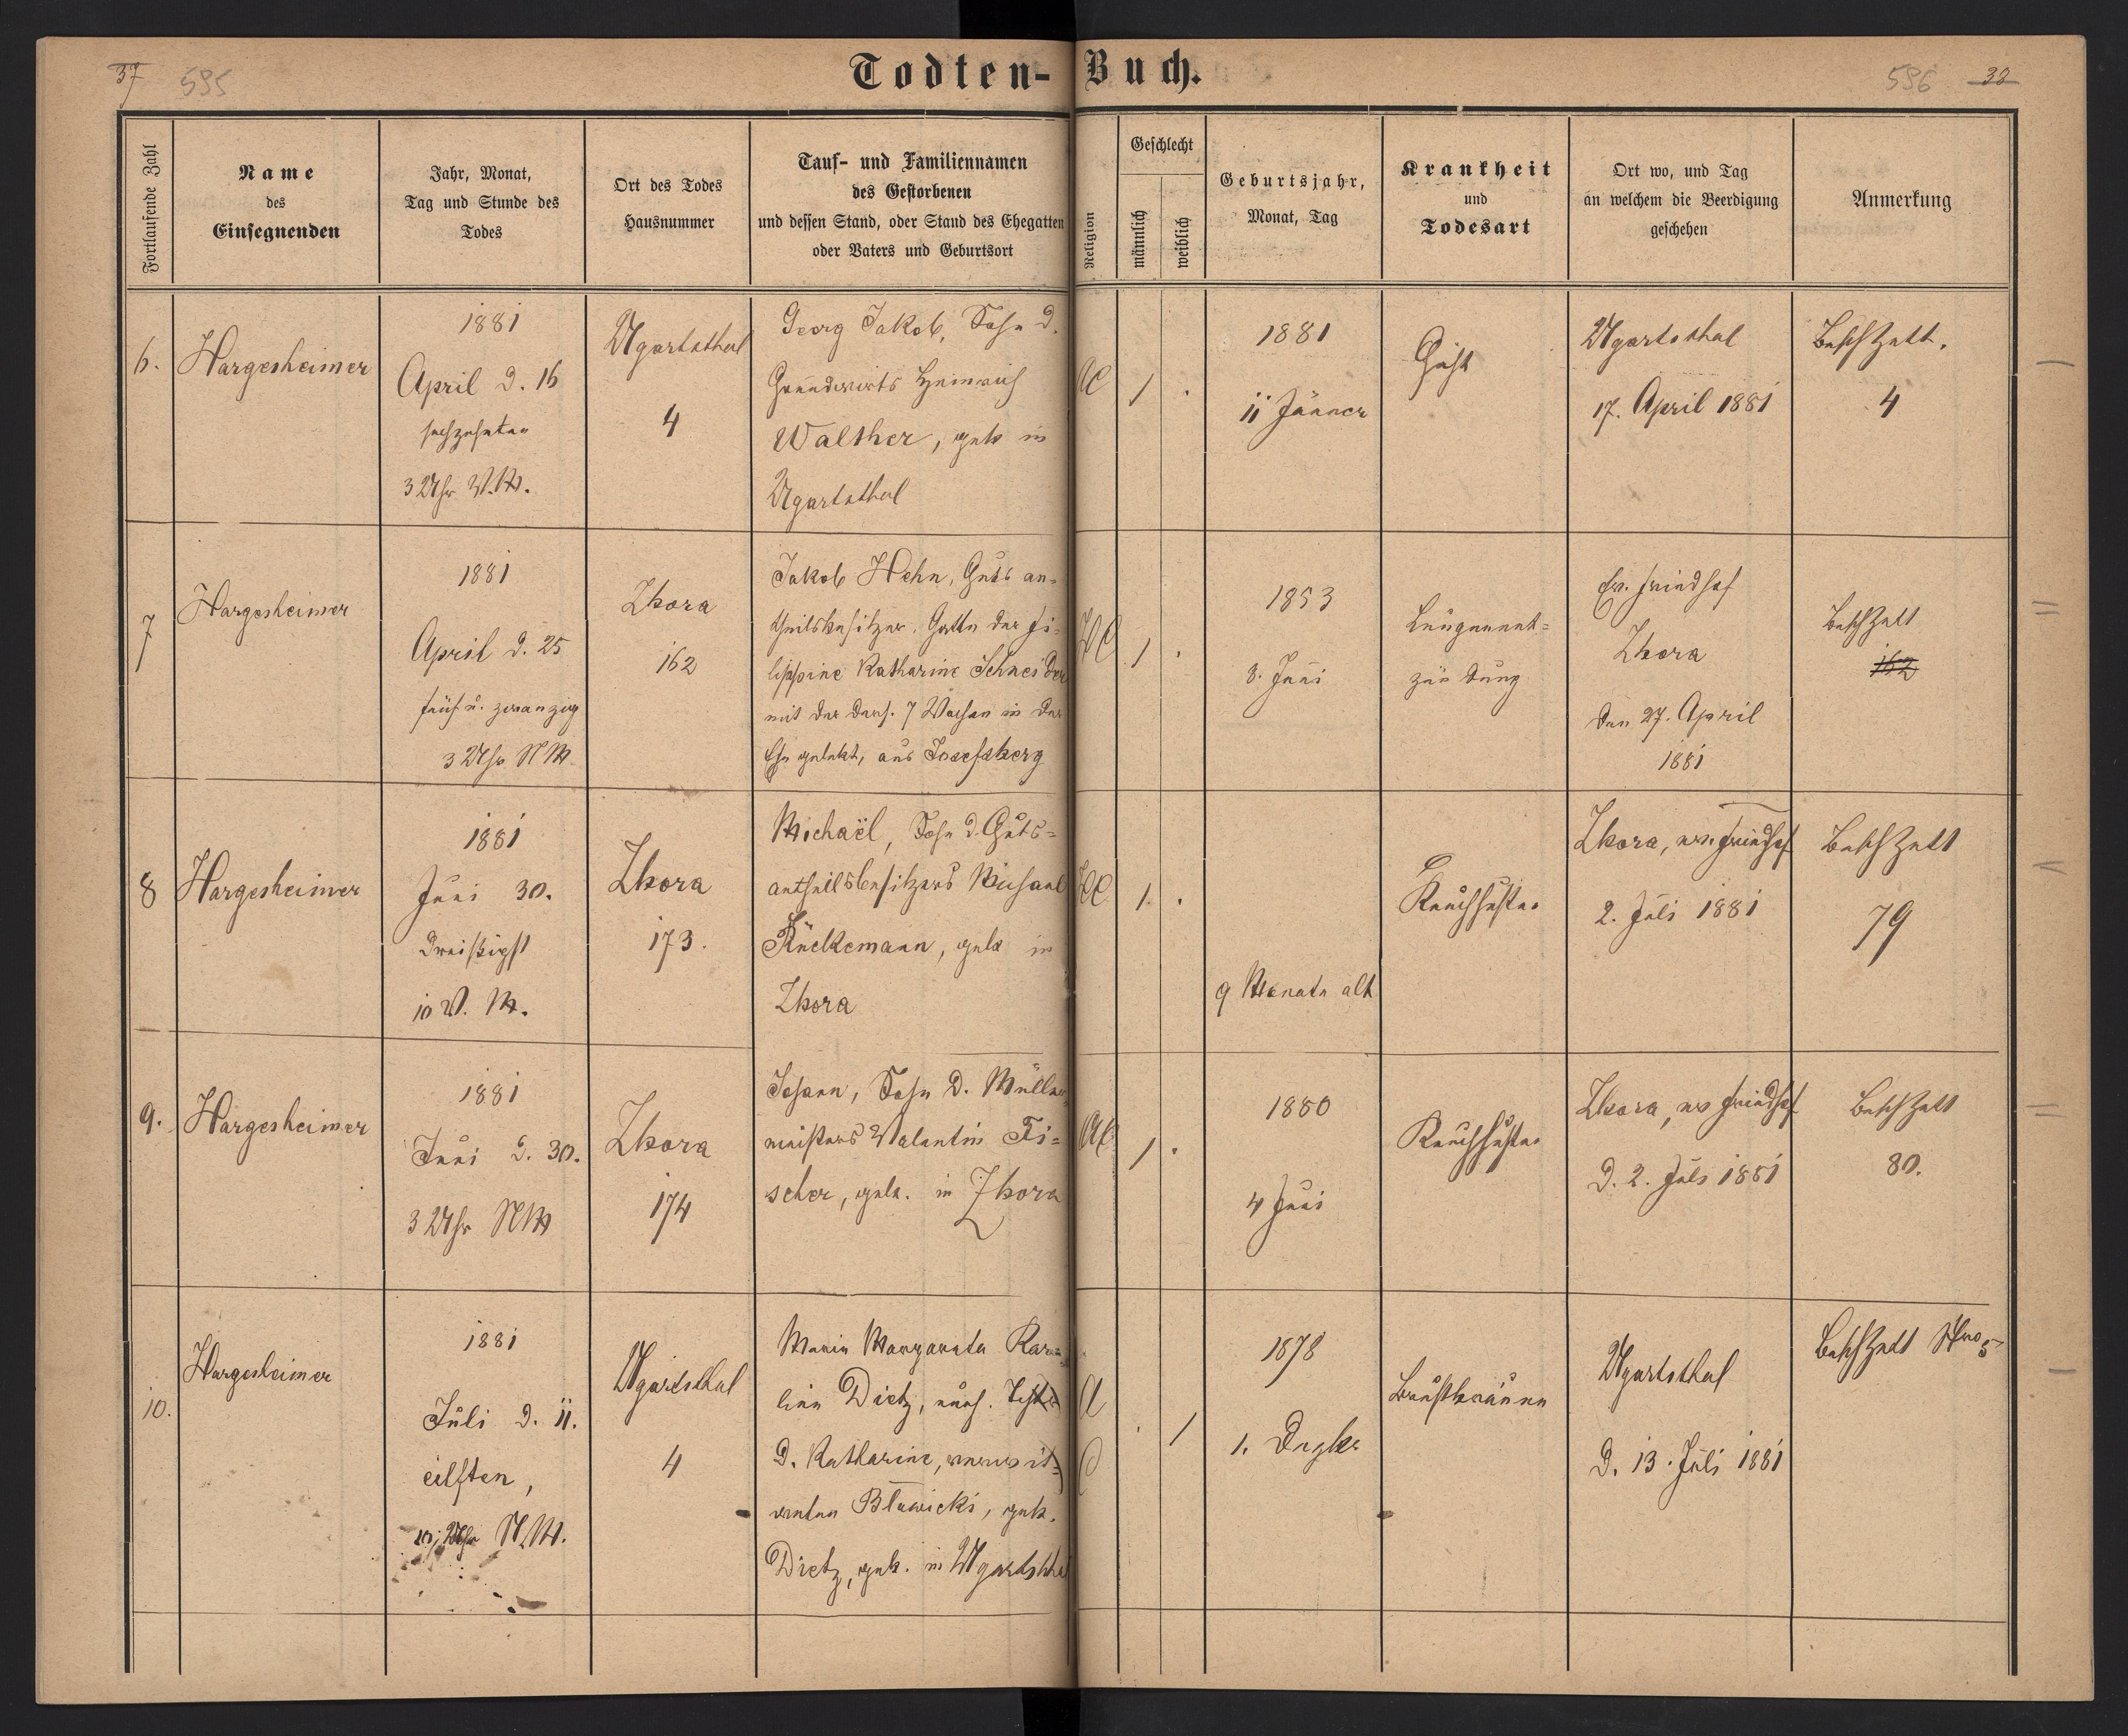 37 595
Todten-Buch.
596 38
Fortlaufende Zahl
Name
des
Einsegnenden
Jahr, Monat,
Tag und Stunde des
Todes
Ort des Todes
Hausnummer
Tauf- und Familiennamen
des Gestorbenen
und dessen Stand, oder Stand des Ehegatten
oder Vaters und Geburtsort
Religion
Geschlecht
männlich
weiblich
Geburtsjahr,
Monat, Tag
Krankheit
und
Todesart
Ort wo, und Tag
an welchem die Beerdigung
geschehen
Anmerkung
6.
Hargesheimer
1881
April d. 16
sechzehnten
3 Uhr V.M.
Ugartsthal
4
Georg Jakob, Sohn d.
Grundwirts Heinrich
Walther, geb in
Ugartsthal
1 .
1881
11 Jänner
Ugartsthal
17. April 1881
Beschzett.
4
7
Hargesheimer
1881
April d. 25
fünf u. zwanzig
3 Uhr NM
Zbora
162
Jakob Hehn, Guts an-
theilsbesitzer, Gatte der Fi-
lippine Katharine Schneider
mit der ders. 7 Wochen in der
Ehe gelebt, aus Josefsberg
1 .
1853
3. Juni
Lungenent=
zündung
Ev. Friedhof
Zbora
den 27. April
1881
Beschzett
162
8
Hargesheimer
1881
Juni 30.
dreißigst
10 V. M.
Zbora
173.
Michaël, Sohn d. Guts=
antheilsbesitzers Michael
Rückemann, geb in
Zbora
1. .
9 Monate alt
Keuchhusten
Zbora, ev. Friedhof
2. Juli 1881
Beschzett
79
9.
Hargesheimer
1881
Juni d. 30.
3 Uhr NM
Zbora
174
Johann, Sohn d. Müller
meisters Valentin Fi=
scher, geb. in Zbora
1 .
1880
4 Juni
Keuchhusten
Zbora, ev Friedhof
d. 2. Juli 1881
Beschzett
80.
10.
Hargesheimer
1881
Juli d. 11.
eilften,
10 Uhr N.M.
Ugartsthal
4
Maria Margareta Karo
line Dietz, uneh. Tochter
d. Katharine, verwit=
weten Bławicki, geb.
Dietz, geb. in Ugartsthal
. 1
1878
1. Dezbr
Brustbräune
Ugartsthal
d. 13. Juli 1881
Beschzett Nro 5